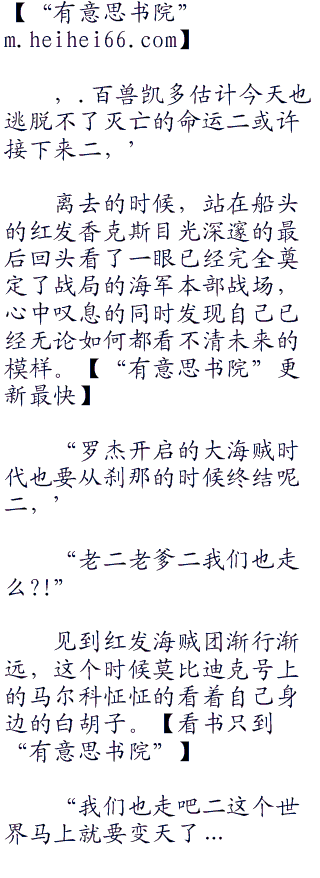 【“有意思书院”
m.heihei66.com】
，.百兽凯多估计今天也
逃脱不了灭亡的命运二或许
接下来二，’
离去的时候，站在船头
的红发香克斯目光深邃的最
后回头看了一眼已经完全奠
定了战局的海军本部战场，
心中叹息的同时发现自己已
经无论如何都看不清未来的
模样。【“有意思书院”更
新最快】
“罗杰开启的大海贼时
代也要从刹那的时候终结呢
二，’
“老二老爹二我们也走
么?!”
见到红发海贼团渐行渐
远，这个时候莫比迪克号上
的马尔科怔怔的看着自己身
边的白胡子。【看书只到
“有意思书院”】
“我们也走吧二这个世
界马上就要变天了...